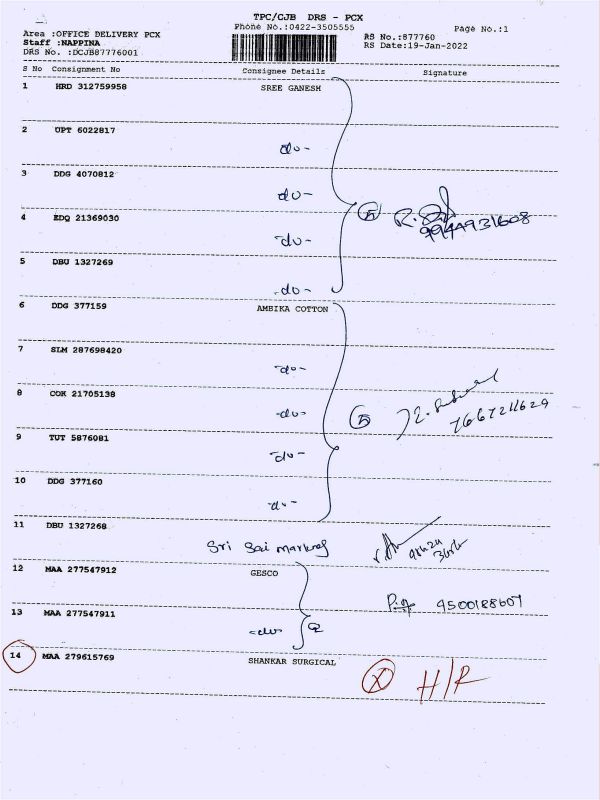 TPC/CJB DRS - PCX
Phone No.:0422-3505555
Page No.:1
Area :OFFICE DELIVERY PCX
Staff :NAPPINA
DRS No. :DCJB87776001
RS No.:877760
RS Date:19-Jan-2022
S No Consignment No Consignee Details Signature
1 HRD 312759958 SREE GANESH
2 UPT 6022817
-do-
3 DDG 4070812
-do-
5
4 EDQ 21369030
-do-
5 DBU 1327269
-do-
6 DDG 377159 AMBIKA COTTON
7 SLM 287698420
-do-
8 COK 21705138
-do- 5
7667211629
9 TUT 5876081
-do-
10 DDG 377160
-do-
11 DBU 1327268
Sri Sai
12 MAA 277547912 GESCO
9500188607
13 MAA 277547911
-do- 2
14 MAA 279615769 SHANKAR SURGICAL
X H/R